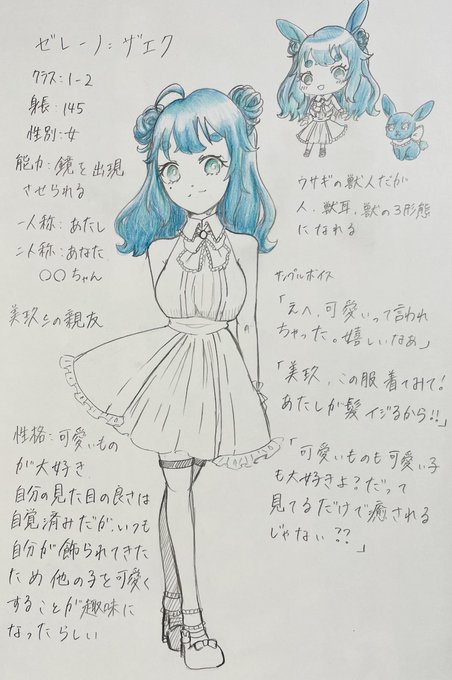 ゼレーノ=ザエク
クラス:1-2
身長:145
性別:女
能力:鏡を出現
させられる
一人称:あたし
二人称:あなた
○○ちゃん
美玖との親友
性格:可愛いもの
が大好き
自分の見た目の良さは
自覚済みだが、いつも
自分が飾られてきた
ため他の子を可愛く
することが趣味に
なったらしい
ウサギの獣人だが
人、獣耳、獣の3形態
になれる
サンプルボイス
「えへ、可愛いって言われ
ちゃった。嬉しいなあ」
「美玖、この服着てみて!
あたしが髪イジるから!!」
「可愛いものも可愛い子
も大好きよ?だって
見てるだけで癒される
じゃない??」